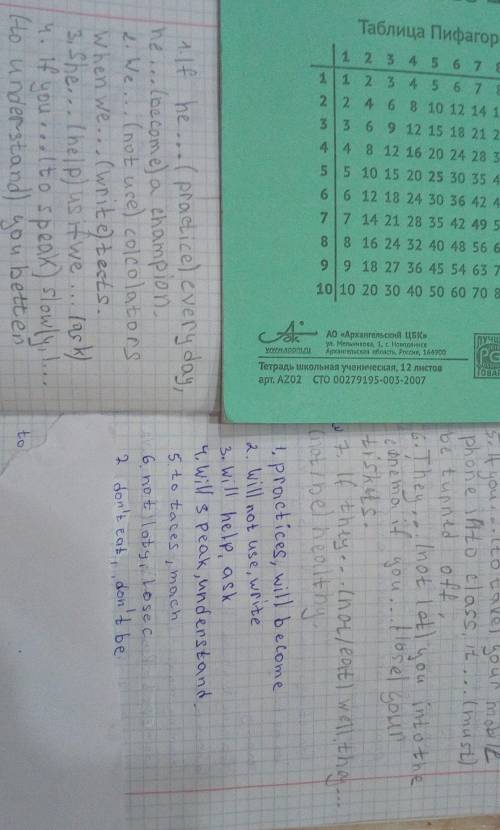 1. If he.... (practice) every day,
he.... (become) a champion.
2. We... (not use) colcolators
when we.... (write) tests.
3. She... (help) us if we.... (ask)
4. If you.... (to speak) slowly, I...
(to understand) you better
Таблица Пифагор
1 2 3 4 5 6 7 8
1 1 2 3 4 5 6 7 8
2 2 4 6 8 10 12 14 1
3 3 6 9 12 15 18 21 2
4 4 8 12 16 20 24 28 3
5 5 10 15 20 25 30 35 4
6 6 12 18 24 30 36 42 4
7 7 14 21 28 35 42 49 5
8 8 16 24 32 40 48 56 6
9 9 18 27 36 45 54 63 7
10 10 20 30 40 50 60 70 8
АО «Архангельский ЦБК»
ул. Мельникова, 1, г. Новодвинск
Архангельская область, Россия, 164900
www.appm.ru
Тетрадь школьная ученическая, 12 листов
арт. А202 СТО 00279195-003-2007
5. If you... to take) your mobile
phone (to class, it... (must)
be turned off.
6. They... (not lat) you into the
cinema if you.... (lose) your
tiskets.
7. If they... (not/eat) well, they...
(not/be healthy.
1. practices, will become
2. will not use, write
3. will help, ask
4. will speak, understand.
5 to takes, mach
6. not laty, losec
7 don't eat, don't be
to